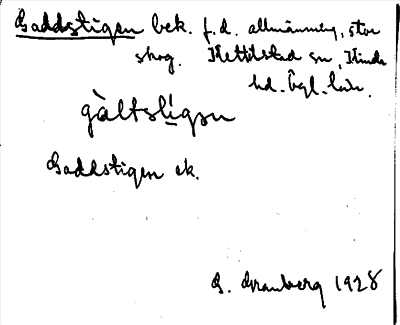 Gaddstigen bek. f.d. allmänning, stor
skog. Kettilstad sn, Kinda
hd. Ögl. län.
gàltslígən
Gaddstigen ek.
G. Franberg 1928